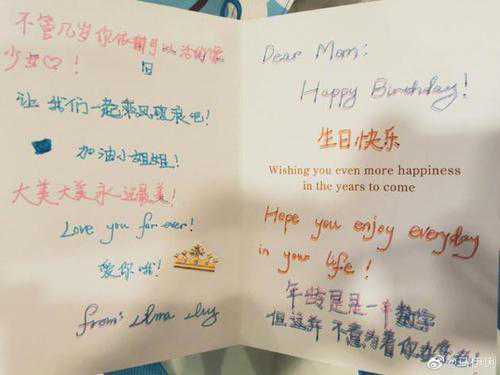 不管几岁你依旧可以活的像
少女♡!
让我们一起乘风破浪吧!
加油小姐姐!
大美大美永远最美!
Love you for ever!
爱你哦!
from:
Dear Mom:
Happy Birthday!
生日快乐
Wishing you even more happiness
in the years to come
Hope you enjoy everyday
in your life!
年龄是一串数字
但这并不意味着你